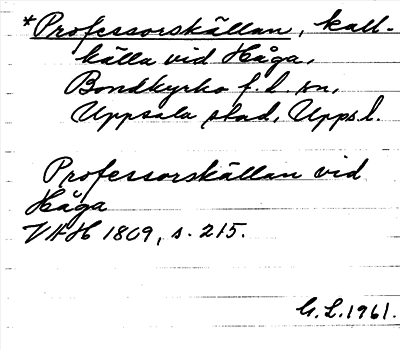 *Professorskällan, kall-
källa vid Håga,
Bondkyrko f.d. sn,
Uppsala stad, Upps.l.
Professorskällan vid
Håga
VHH 1809, s. 215.
G.L. 1961.